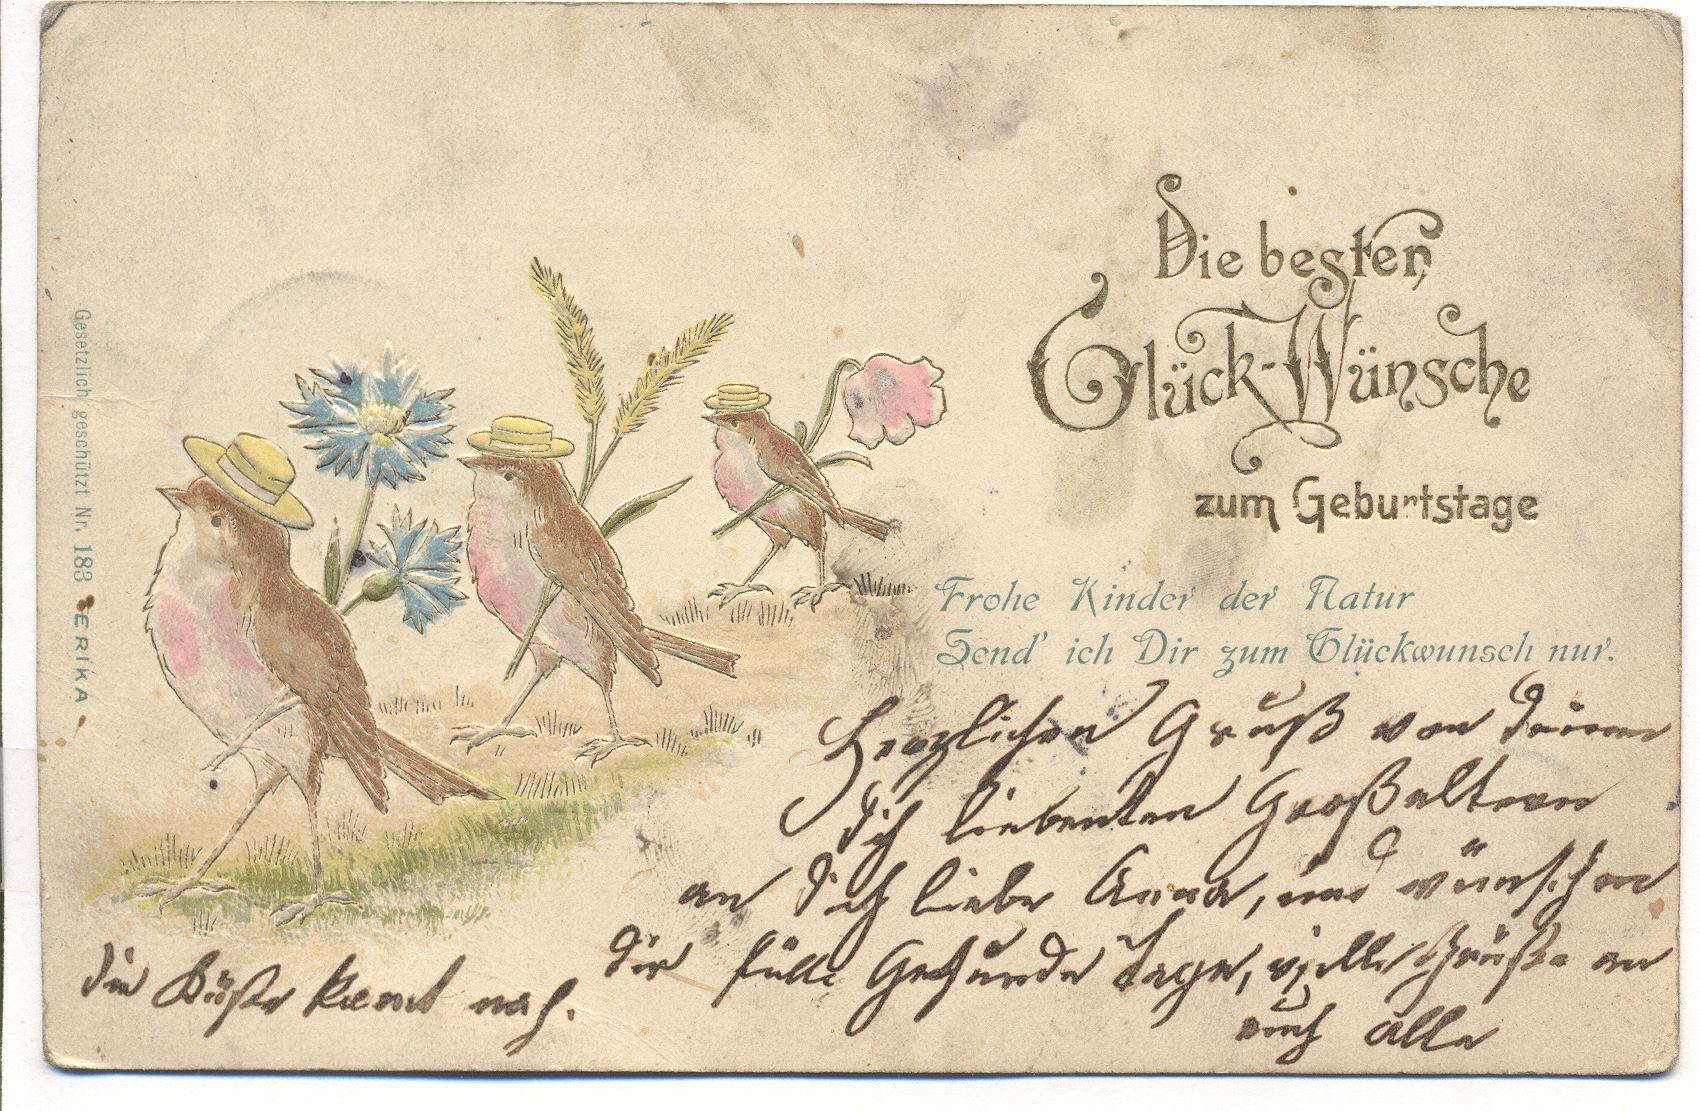 Die besten
Glück-Wünsche
zum Geburtstage
Frohe Kinder der Natur
Send' ich Dir zum Glückwunsch nur.
Herzlichen Gruß von Deinen
Dich liebenten Großeltern
an Dich liebe Anna, und wünschen
Dir fülle Gesunde Tage, vielle Grüße an
euch alle
die Küste kommt nach.
Gesetzlich geschützt Nr. 183 ERIKA